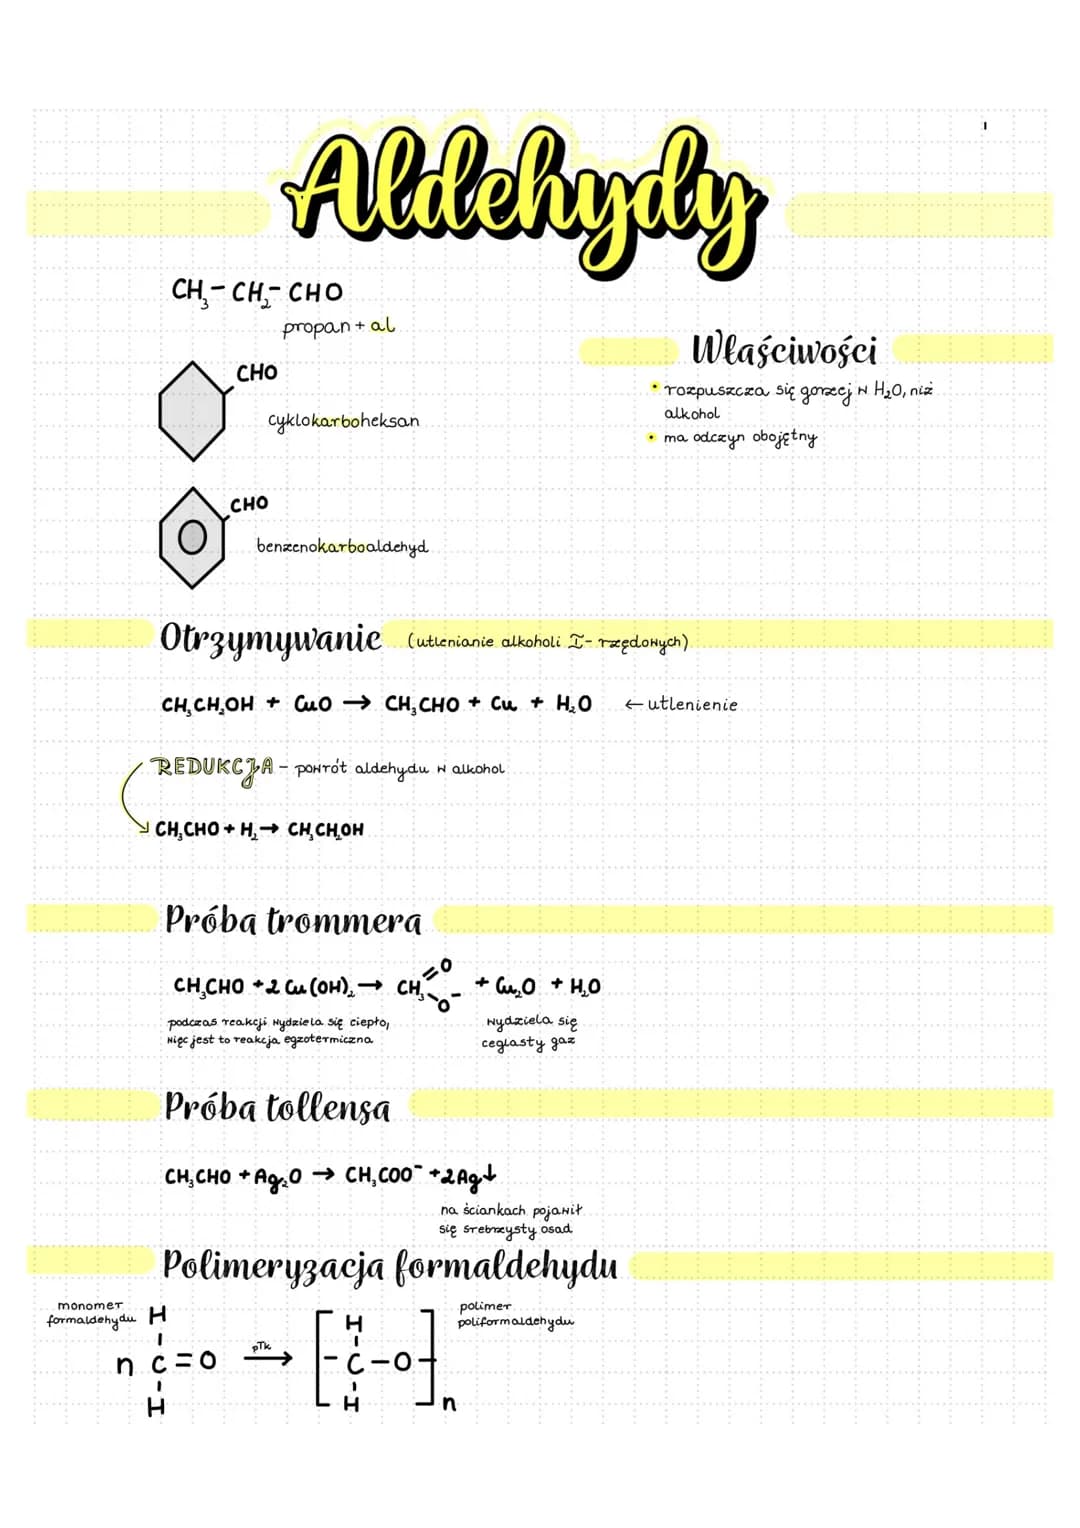 1
Aldehydy
CH₃-CH₂-CHO
propan + al
CHO
cyklokarboheksan
CHO
benzenokarboaldehyd
Właściwości
• rozpuszcza się gorzej w H₂O, niż
alkohol
• ma odczyn obojętny
Otrzymywanie (utlenianie alkoholi I-rzędowych)
CH₃CH₂OH + CuO → CH₃CHO + Cu + H₂O ← utlenienie
REDUKCJA - powrót aldehydu w alkohol
CH₃CHO + H₂ → CH₃CH₂OH
Próba trommera
CH₃CHO + 2 Cu(OH)₂ → CH₃ =O -O⁻ + Cu₂O + H₂O
podczas reakcji wydziela się ciepło,
więc jest to reakcja egzotermiczna
wydziela się
ceglasty gaz
Próba tollensa
CH₃CHO + Ag₂O → CH₃COO⁻ + 2Ag↓
na ściankach pojawił
się srebrzysty osad
Polimeryzacja formaldehydu
monomer
formaldehydu
H
n C=O
H
pTk
→
H
[-C-O-]n
H
polimer
poliformaldehydu